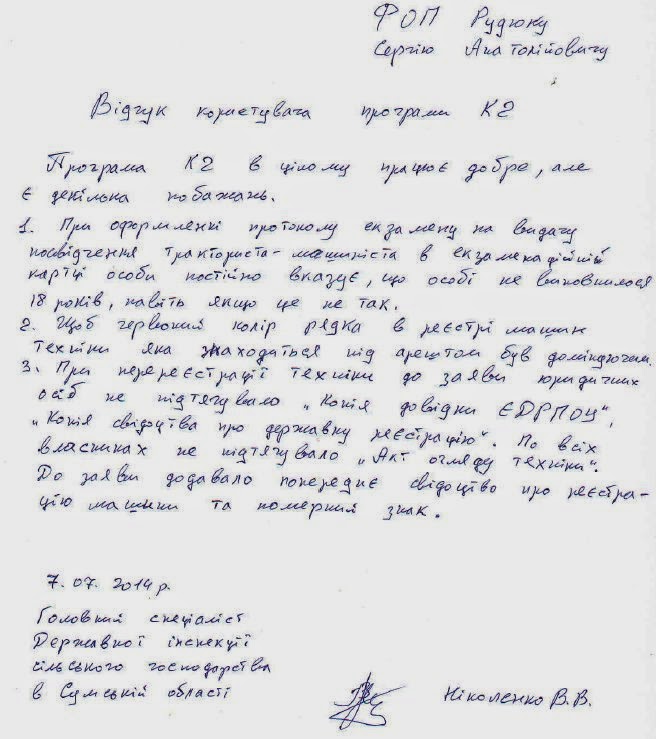 ФОП Рудюку
Сергію Анатолійовичу
Відгук користувача програми К2
Програма К2 в цілому працює добре, але
є декілька побажань.
1. При оформленні протоколу екзамену на видачу
посвідчення тракториста-машиніста в екзаменаційній
картці особи постійно вказує, що особі не виповнилося
18 років, навіть якщо це не так.
2. Щоб червоний колір рядка в реєстрі машин
техніки яка знаходиться під арештом був домінуючим.
3. При перереєстрації техніки до заяви юридичних
осіб не підтягувало „Копія довідки ЄДРПОУ",
„Копія свідоцтва про державну реєстрацію". По всіх
власниках не підтягувало „Акт огляду техніки".
До заяви додавало попереднє свідоцтво про реєстра-
цію машини та номерний знак.
7.07.2014 р.
Головний спеціаліст
Державної інспекції
сільського господарства
в Сумській області
Ніколенко В.В.